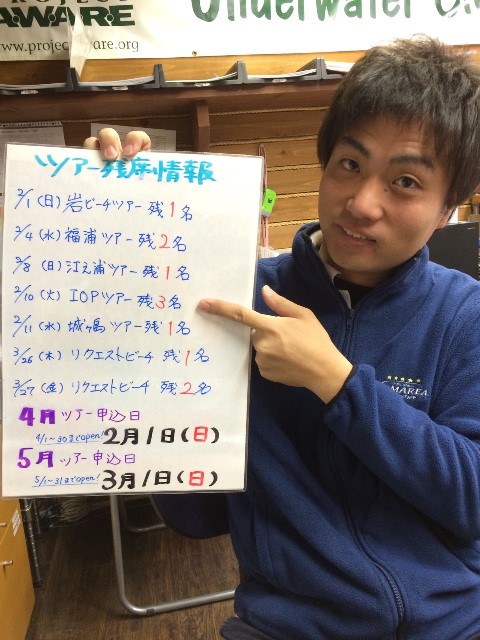 PROJECT
AWARE
www.projectaware.org
Underwater
ツアー残席情報
2/1(日)岩ビーチツアー 残1名
2/4(水)福浦ツアー 残2名
2/8(日)江之浦ツアー 残1名
2/10(火)IOPツアー 残3名
2/11(水)城ヶ島ツアー残1名
3/26(木)リクエストビーチ 残1名
3/27(金)リクエストビーチ 残2名
4月ツアー申込日
4/1~30までopen!2月1日(日)
5月ツアー申込日
5/1~31までopen!3月1日(日)